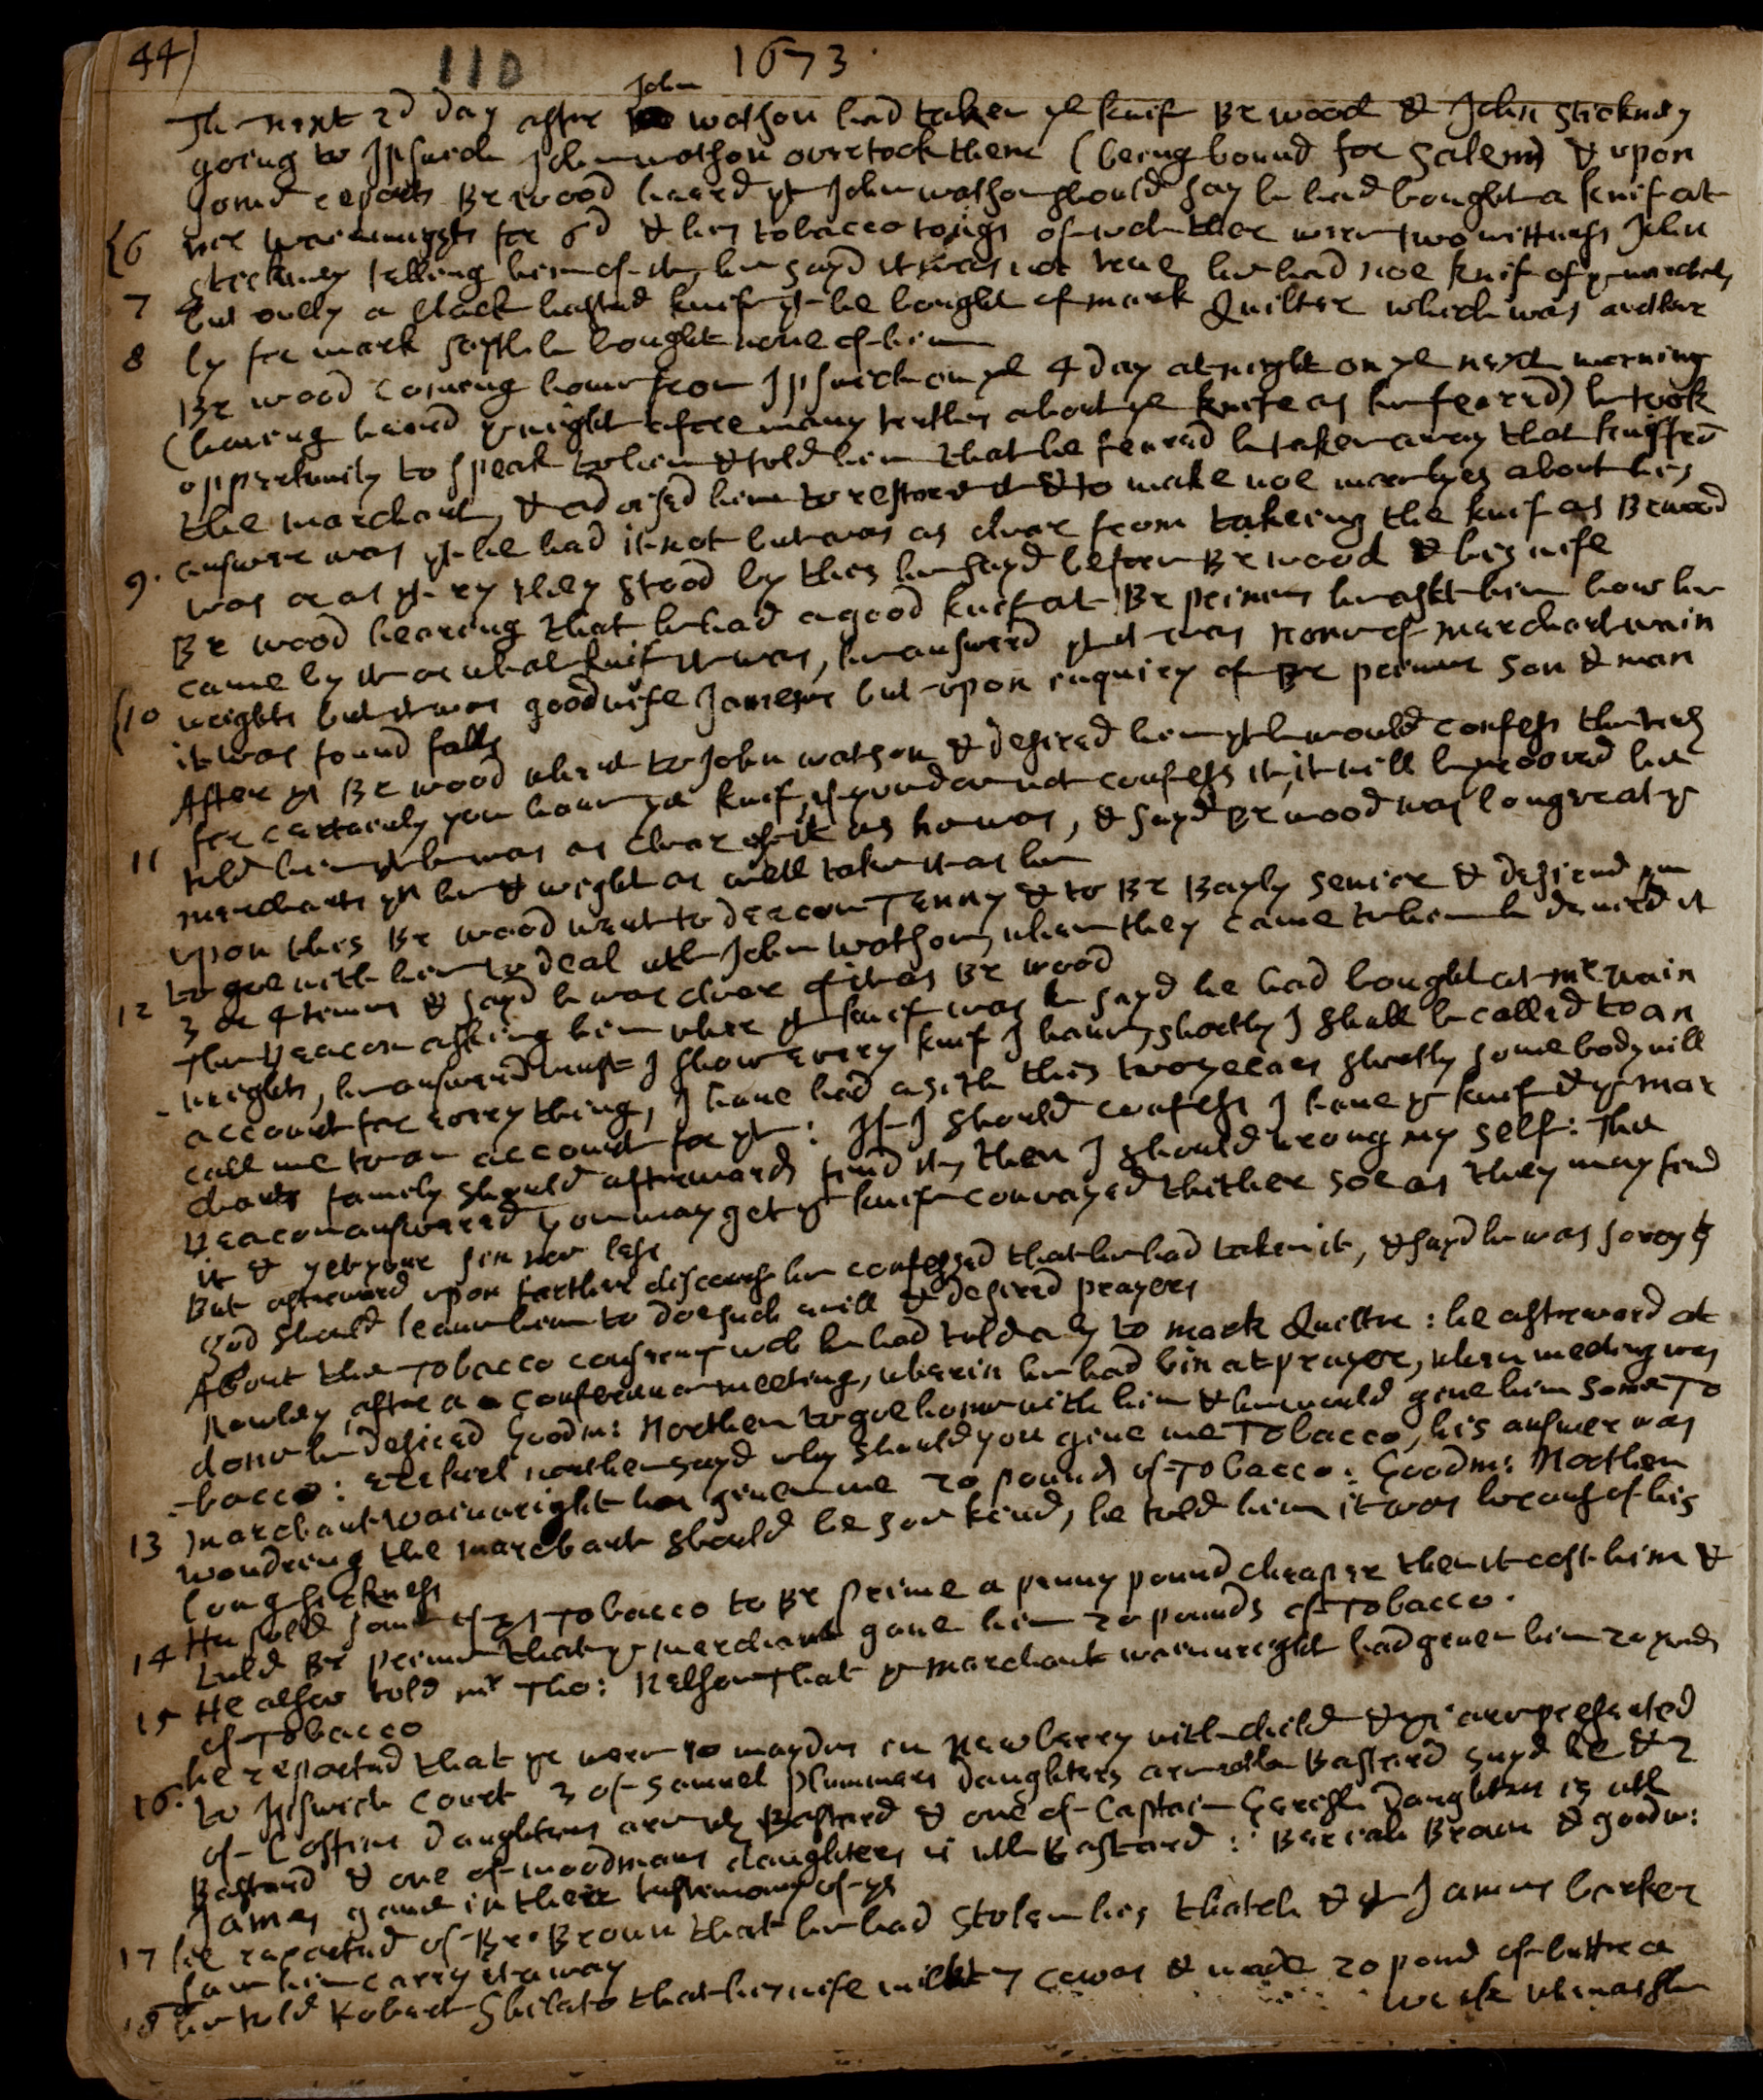 44)
110
1673
John
The next 2d day after watson had taken ye knif Br wood & John Stickney
going to Ipswich John watson overtook them (being bound for Salem) & upon
some reports Br wood heard yt John watson should say he had bought a knif at
{6 mr wainwrights for 6d & his tobacco tongs of wch ther were two wittness John
Stickney telling him of it, he sayd it was not true, he had noe knif of ye marchants
7 but only a black hafted knif yt he bought of mark Quilter which was another
8 ly for mark sayth he bought none of him
Br wood coming home from Ipswich on ye 4 day at night on ye next morning
(having heard ye night before many truths about ye knife as he feared) he took
oppertunity to speak to him & told him that he feared he taken away that knif from
the marchant, & advised him to restore it & to make noe more lyes about his
answer was yt he had it not but was as clear from takeing the knif as Br wood
9. was or as yt ry they stood by this he sayd before Br wood & his wife
Br wood hearing that he had a good knif at Br primes he askt him how he
came by it or what knif it was, he answerd yt it was none of marchant wain
{10 wrights but it was goodwife Jameses but upon enquiry of Br primes son & man
it was found falls
After ys Br wood went to John watson & desired him yt he would confess the truth
for certainly you have ye knif, if you doe not confess it, it will be prooved he
11 told him yt he was as clear of it as he was, & sayd Br wood was long neat ye
merchants yn he & might as well take it as he
upon this Br wood went to deacon Tenny & to Br Bayly senior & desired ym
to goe with him to deal wth John watson, when they came to him he denied it
12 3 or 4 times & sayd he was clear of it as Br wood
The Deacon asking him wher yt knif was he sayd he had bought at mr wain
-wrights, he answerd must I show every knif I have, shortly I shall be called to an
account for every thing, I have had a sith this two yeeres shortly some body will
call me to an account for yt: If I should confess I have ye knif & ye mar
chants family should afterwards find it, then I should wrong my self: The
Deacon answered you may get ye knif convayed thither soe as they may find
it & yet your sin nev less
But afterward upon farther discourse he confessed that he had taken it, & sayd he was sorry yt
god should leave him to doe such evill & desired prayers
About the Tobacco concerning wch he had told a ly to mark Quilter: he afterward at
Rowley after a conference meeting, wherein he had bin at prayer, when meeting was
done he desired Goodm: Northen to goe home with him & he would give him some To
-bacco: Ezekiel northen sayd why should you give me Tobacco, his answer was
13 marchant wainwright has given me 20 pounds of Tobacco: Goodm: Northen
wondring the marchant should be soe kind, he told him it was because of his
long sickness
14 He sold some of ys Tobacco to Br Prime a penny pound cheaper then it cost him &
told Br prime that ye merchant gave him 20 pounds of Tobacco.
15 He alsoe told mr Tho: Nelson That ye marchant wainwright had given him 20 pounds
of Tobacco
16. he reported that yr were 10 maydes in Newberry with child & yt are presented
to Ipswich Court 3 of Samuel Plummers daughters are with Bastard sayd he & 2
of Coffins daughters are wth Bastard & one of Captain Gerrish daughters is wth
Bastard & one of woodmans daughters is wth Bastard: Beriah Brown & goodw:
James gave in their testimony of ys
17 he reported of Br Brown that he had Stolen his thatch & yt James barker
saw him carry it away
18 he told Robert Shilato that his wife milkt 7 cowes & made 20 pond of butter a
week when as he